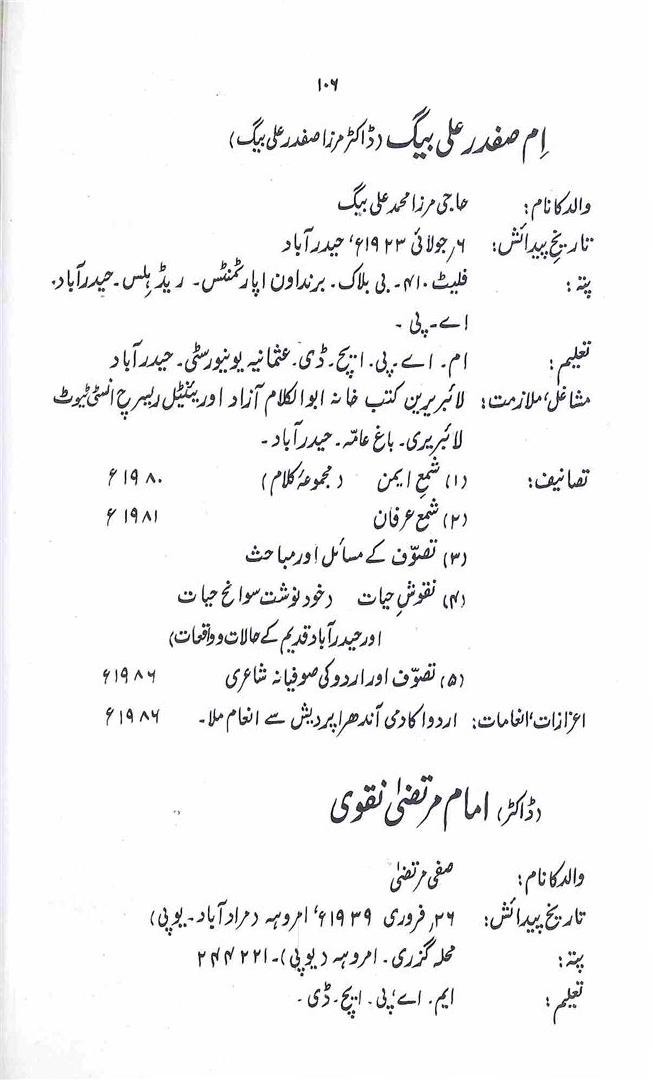 ۱۰۶
اِم صفدر علی بیگ (ڈاکٹر مرزا صفدر علی بیگ)
والد کا نام: حاجی مرزا محمد علی بیگ
تاریخ پیدائش: ۶؍ جولائی ۱۹۲۳ء، حیدرآباد
پتہ: فلیٹ ۴۱۰۔ بی بلاک۔ برنداون اپارٹمنٹس۔ ریڈ ہلس۔ حیدرآباد۔
اے۔ پی۔
تعلیم: ام۔ اے۔ پی۔ ایچ۔ ڈی۔ عثمانیہ یونیورسٹی۔ حیدرآباد
مشاغل، ملازمت: لائبریرین کتب خانہ ابوالکلام آزاد اورینٹیل ریسرچ انسٹی ٹیوٹ
لائبریری۔ باغ عامّہ۔ حیدرآباد۔
تصانیف: (۱) شمعِ ایمن (مجموعۂ کلام) ۱۹۸۰ء
(۲) شمع عرفان ۱۹۸۱ء
(۳) تصوّف کے مسائل اور مباحث
(۴) نقوشِ حیات (خود نوشت سوانح حیات
اور حیدرآباد قدیم کے حالات و واقعات)
(۵) تصوّف اور اردو کی صوفیانہ شاعری ۱۹۸۶ء
اعزازات، انعامات: اردو اکادمی آندھرا پردیش سے انعام ملا۔ ۱۹۸۶ء
(ڈاکٹر) امام مرتضیٰ نقوی
والد کا نام: صفی مرتضیٰ
تاریخ پیدائش: ۲۶؍ فروری ۱۹۳۹ء، امروہہ (مرادآباد۔ یوپی)
پتہ: محلہ گزری۔ امروہہ (یوپی)۔ ۲۴۴۲۲۱
تعلیم: ایم۔ اے، پی۔ ایچ۔ ڈی۔